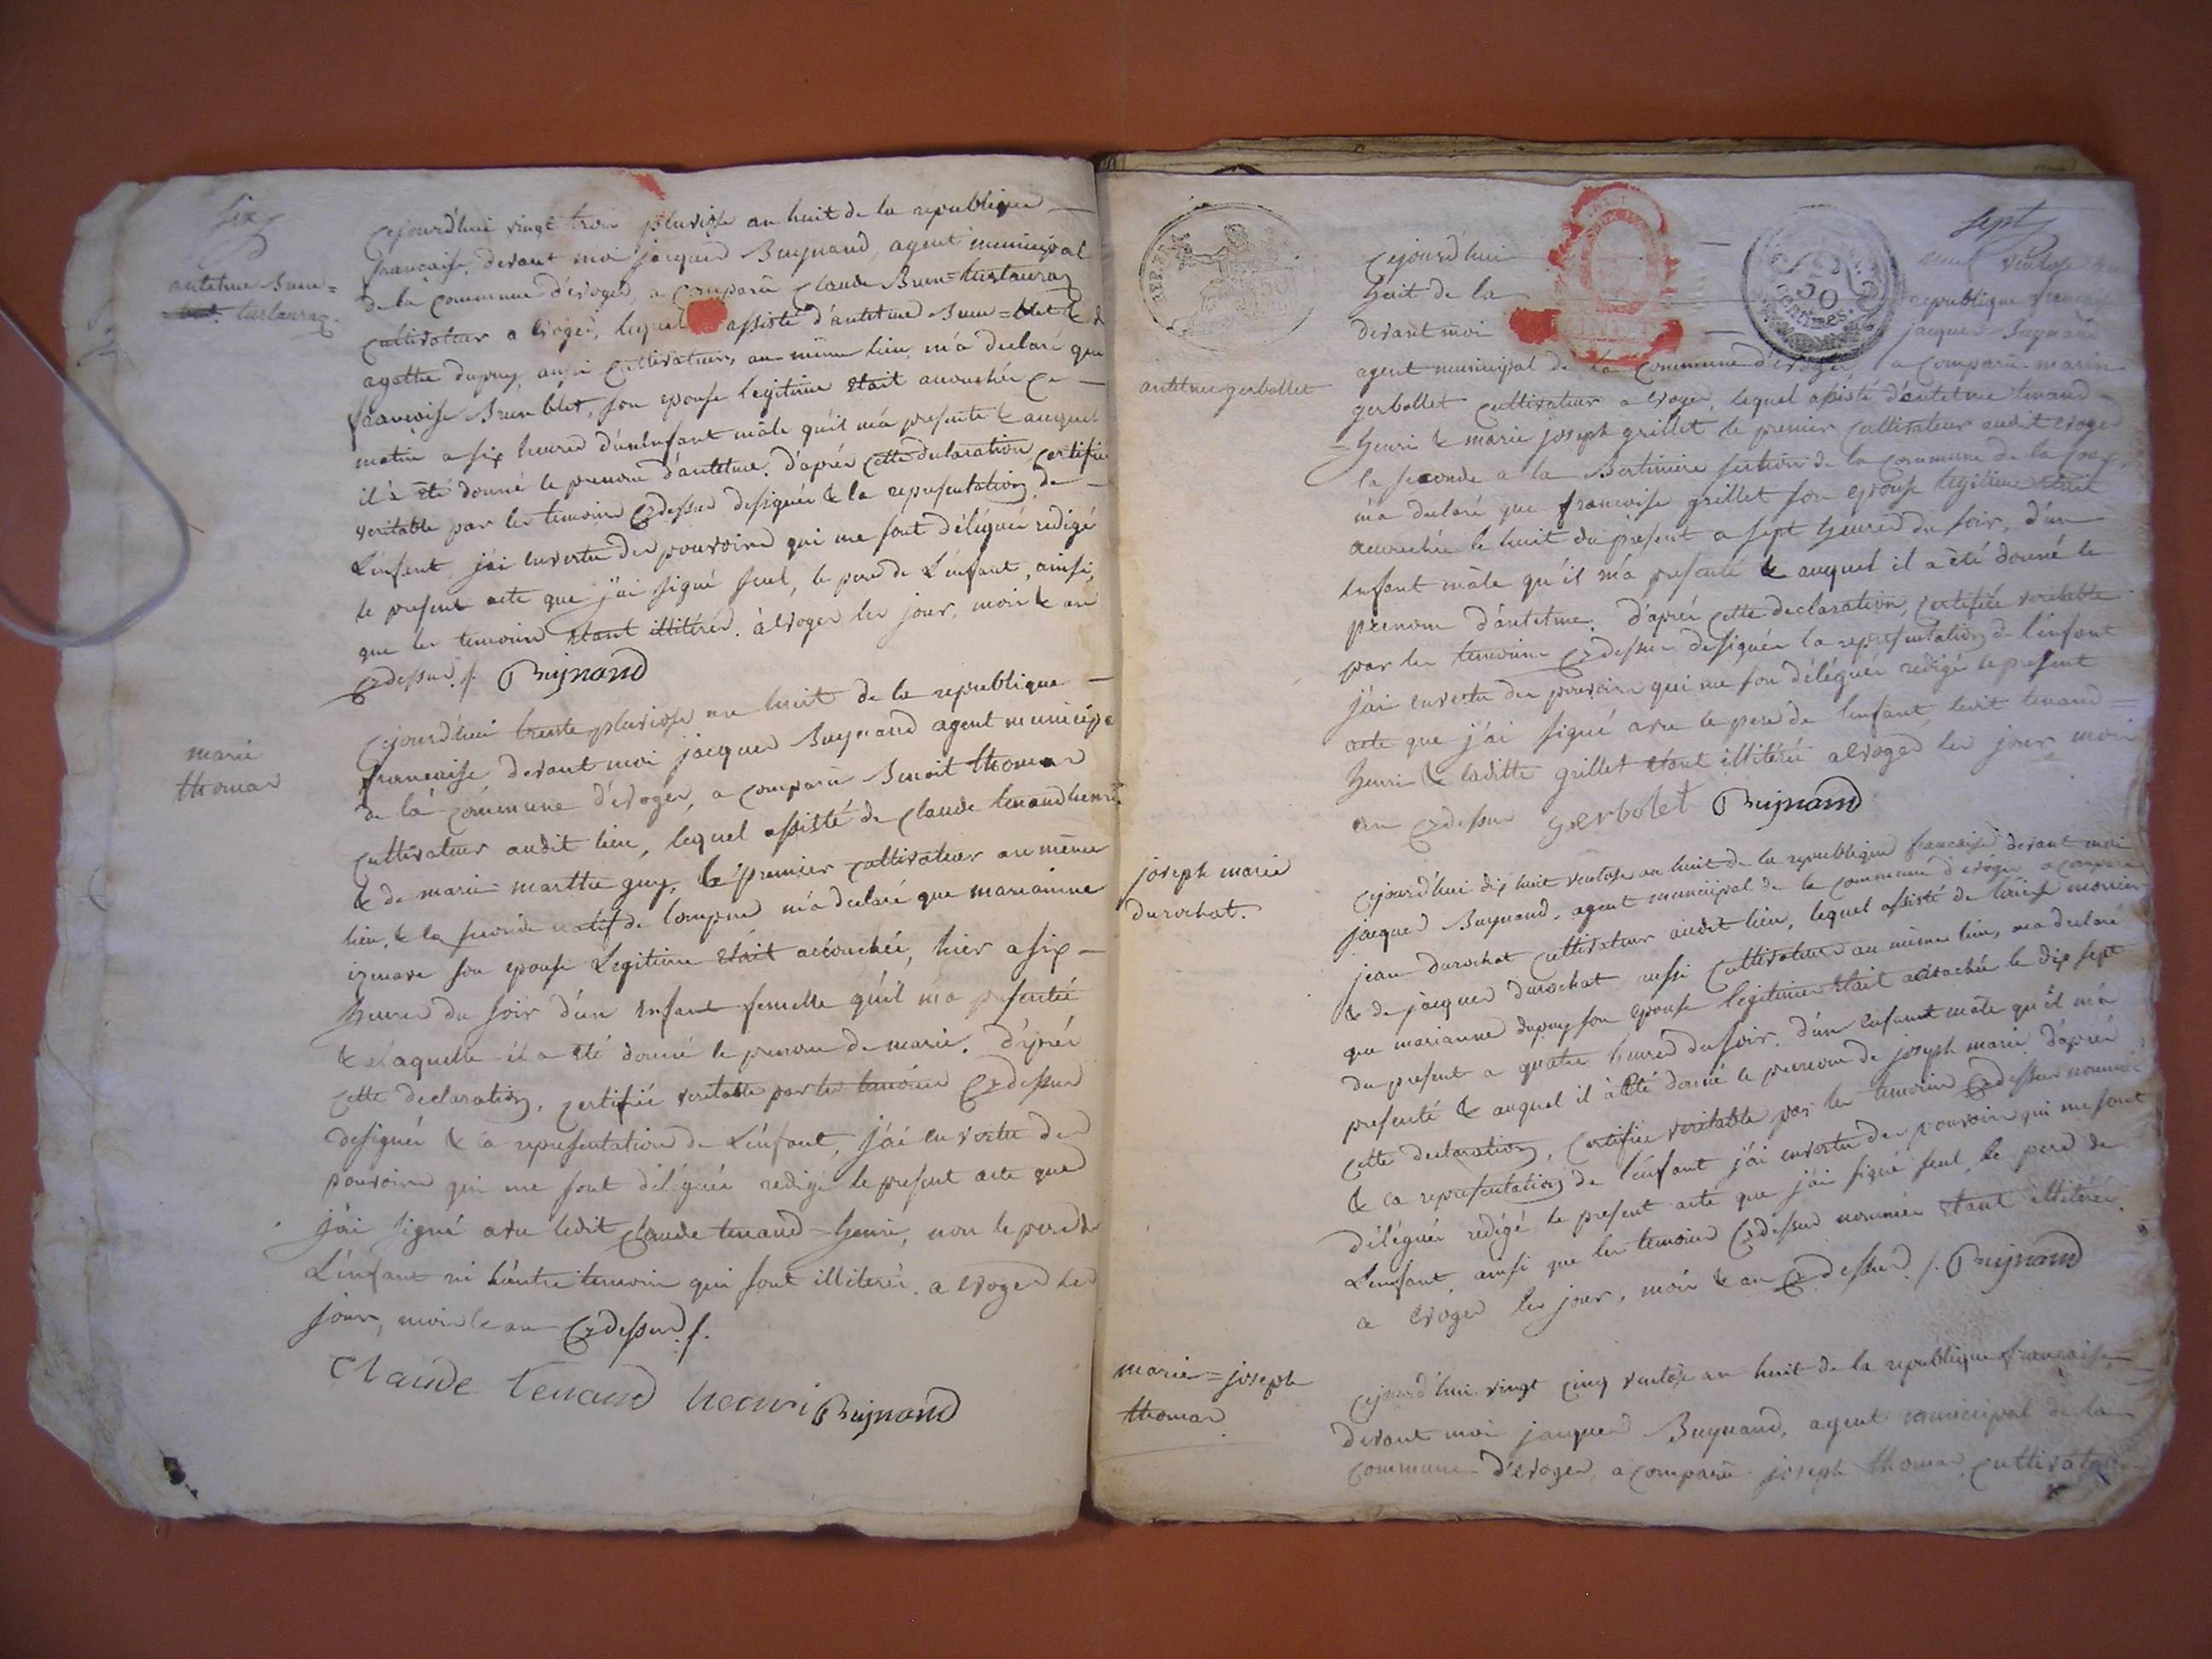 six
antelme Brun=
blet turlauraz.
Cejourd'hui vingt trois pluviose an huit de la republique
française, devant moi jacques Buynand, agent municipal
de la commune d'évoges, a comparû Claude Brun=turlauraz
cultivateur a évoges, lequel assisté d'antelme Brun=blet & d
agathe dupuy, aussi cultivateurs au même lieu, m'a declaré que
francoise Brun blet, son epouse legitime était accouchée ce
matin a six heures d'un enfant mâle qu'il m'a presenté & auquel
il a été donné le prenom d'antelme. d'après cette declaration, certifiée
veritable par les temoins cydessus designés & la representation de
L'enfant j'ai en vertu des pouvoirs qui me sont délégués redigé
le present acte que j'ai signé seul, le pere de L'enfant, ainsi
que les temoins étant illitérés. à évoges les jour, mois & an
cydessus./. Buijnand
marie
thomas
Cejourd'hui trente pluviose an huit de la republique
francaise devant moi jacques Buynand agent municipa
de la commune d'évoges, a comparû Benoit thomas
cultivateur audit lieu, lequel assisté de Claude tenand henri
& de marie=marthe guy, le premier cultivateur au même
lieu, & la seconde natif de lompnes m'a declaré que marianne
son epouse Legitime était accouchée, hier a six
heures du soir d'un enfant femelle qu'il m'a presentée
& a laquelle il a été donné le prenom de marie. D'après
cette declaration, certifiée veritable par les temoins cydessus
designés & la representation de L'enfant, j'ai en vertu des
pouvoirs qui me sont délégués redigé le present acte que
j'ai signé avec ledit Claude tenand=henri, non le pere de
L'enfant ni L'autre temoin qui sont illiterés. a évoges les
jour, mois & an cydessus./.
Claude tenand henri Buijnand
sept
REP. FRA
50
centimes.
Cejourd'hui neuf ventose an
huit de la republique francaise
devant moi jacques Buynand
agent municipal de la commune d'évoges, a comparû marin
antelme gerbollet
gerbollet cultivateur a évoges, lequel assisté d'antelme tenand
=henri & marie joseph grillet le premier cultivateur audit évoges
la seconde a la Bertiniere section de la commune de la
m'a declaré que francoise grillet son epouse legitime était
accouchée le huit du present a sept heures du soir, d'un
enfant mâle qu'il m'a presenté & auquel il a été donné le
prenom d'antelme. D'après cette declaration, certifiée veritable
par les temoins cydessus designés la representation de l'enfant
j'ai en vertu des pouvoirs qui me son délégués redigé le present
acte que j'ai signé avec le pere de l'enfant, ledit tenand=
henri & laditte grillet étant illitérés a évoges les jour, mois
an cydessus gerbolet Buijnand
joseph marie
durochat.
Cejourd'hui dix huit ventose an huit de la republique francaise devant moi
jacques Buynand. agent municipal de la commune d'évoges a comparu
jean durochat cultivateur audit lieu, lequel assisté de louise monier
& de jacques durochat aussi cultivateurs au même lieu, m'a declaré
que marianne dupuy son epouse legitime était accouchée le dix sept
du present a quatre heures du soir. d'un enfant mâle qu'il m'a
presenté & auquel il a été donné le prenom de joseph marie d'après
cette declaration, certifiée veritable par les temoins cydessus nommés
& la representation de l'enfant j'ai en vertu des pouvoirs qui me sont
délégués redigé le present acte que j'ai signé seul le pere de
L'enfant, ainsi que les temoins cydessus nommés étant illitérés.
a évoges les jour, mois & an cydessus./. Buijnand
marie=joseph
thomas.
Cejourd'hui vingt cinq ventose an huit de la republique française
devant moi jacques Buynand, agent municipal de la
commune d'évoges, a comparû joseph thomas, cultivateur